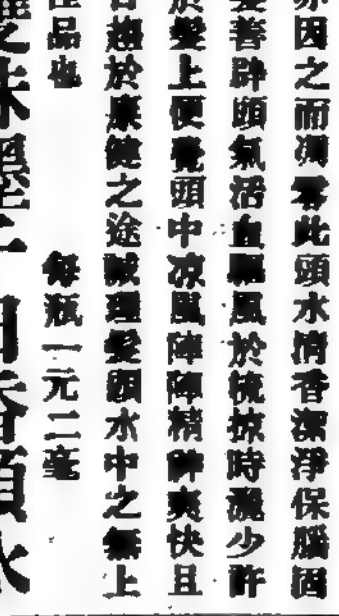 亦因之而凋零此頭水清香潔淨保腦固
髮善辟頭氣活血驅風於梳掠時灑少許
於髮上便覺頭中涼風陣陣精神爽快且
日趨於康健之途誠理髮頭水中之無上
佳品也 每瓶一元二毫